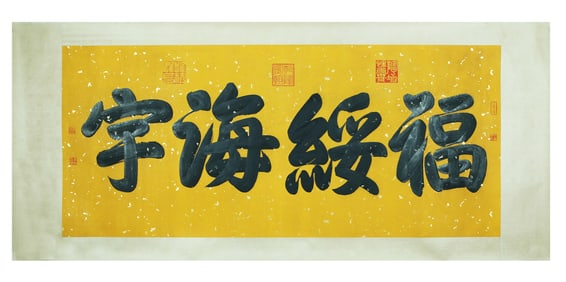 福綏海宇